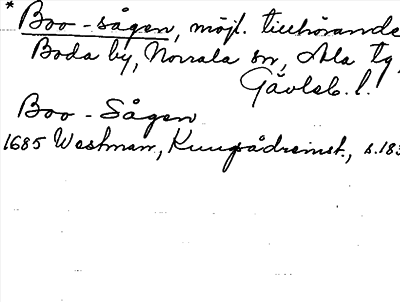 * Boo-sågen, möjl. tillhörande
Boda by, Norrala sn, Ala tg,
Gävleb. l.
Boo - Sågen
1685 Westman, Kungsådreinst., s.183